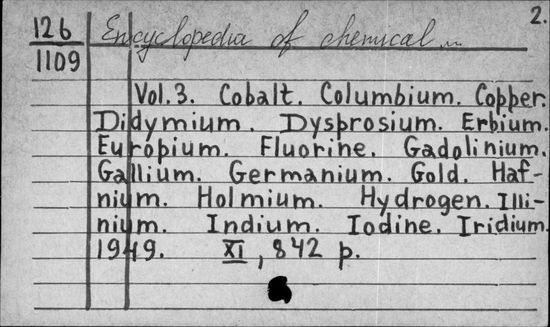 2.
126 Encyclopedia of chemical...
1109
Vol.3. Cobalt. Columbium. Copper.
Didymium. Dysprosium. Erbium.
Europium. Fluorine. Gadolinium.
Gallium. Germanium. Gold. Haf-
nium. Holmium. Hydrogen. Illi-
nium. Indium. Iodine. Iridium.
1949. XI, 842 p.